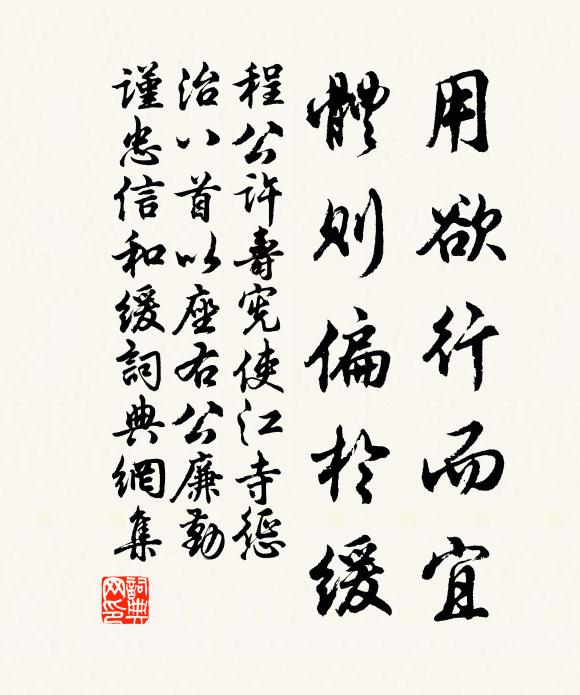 用欲行而宜
體則偏於緩
程公許壽憲使江寺丞
治八首以座右公廉勤
謹忠信和緩詞典網集
詞典網印